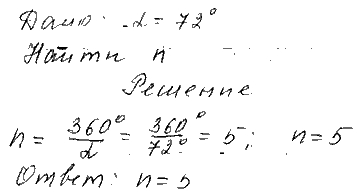 Дано: α = 72°
Найти n
Решение
n = 360°/α = 360°/72° = 5; n = 5
Ответ: n = 5